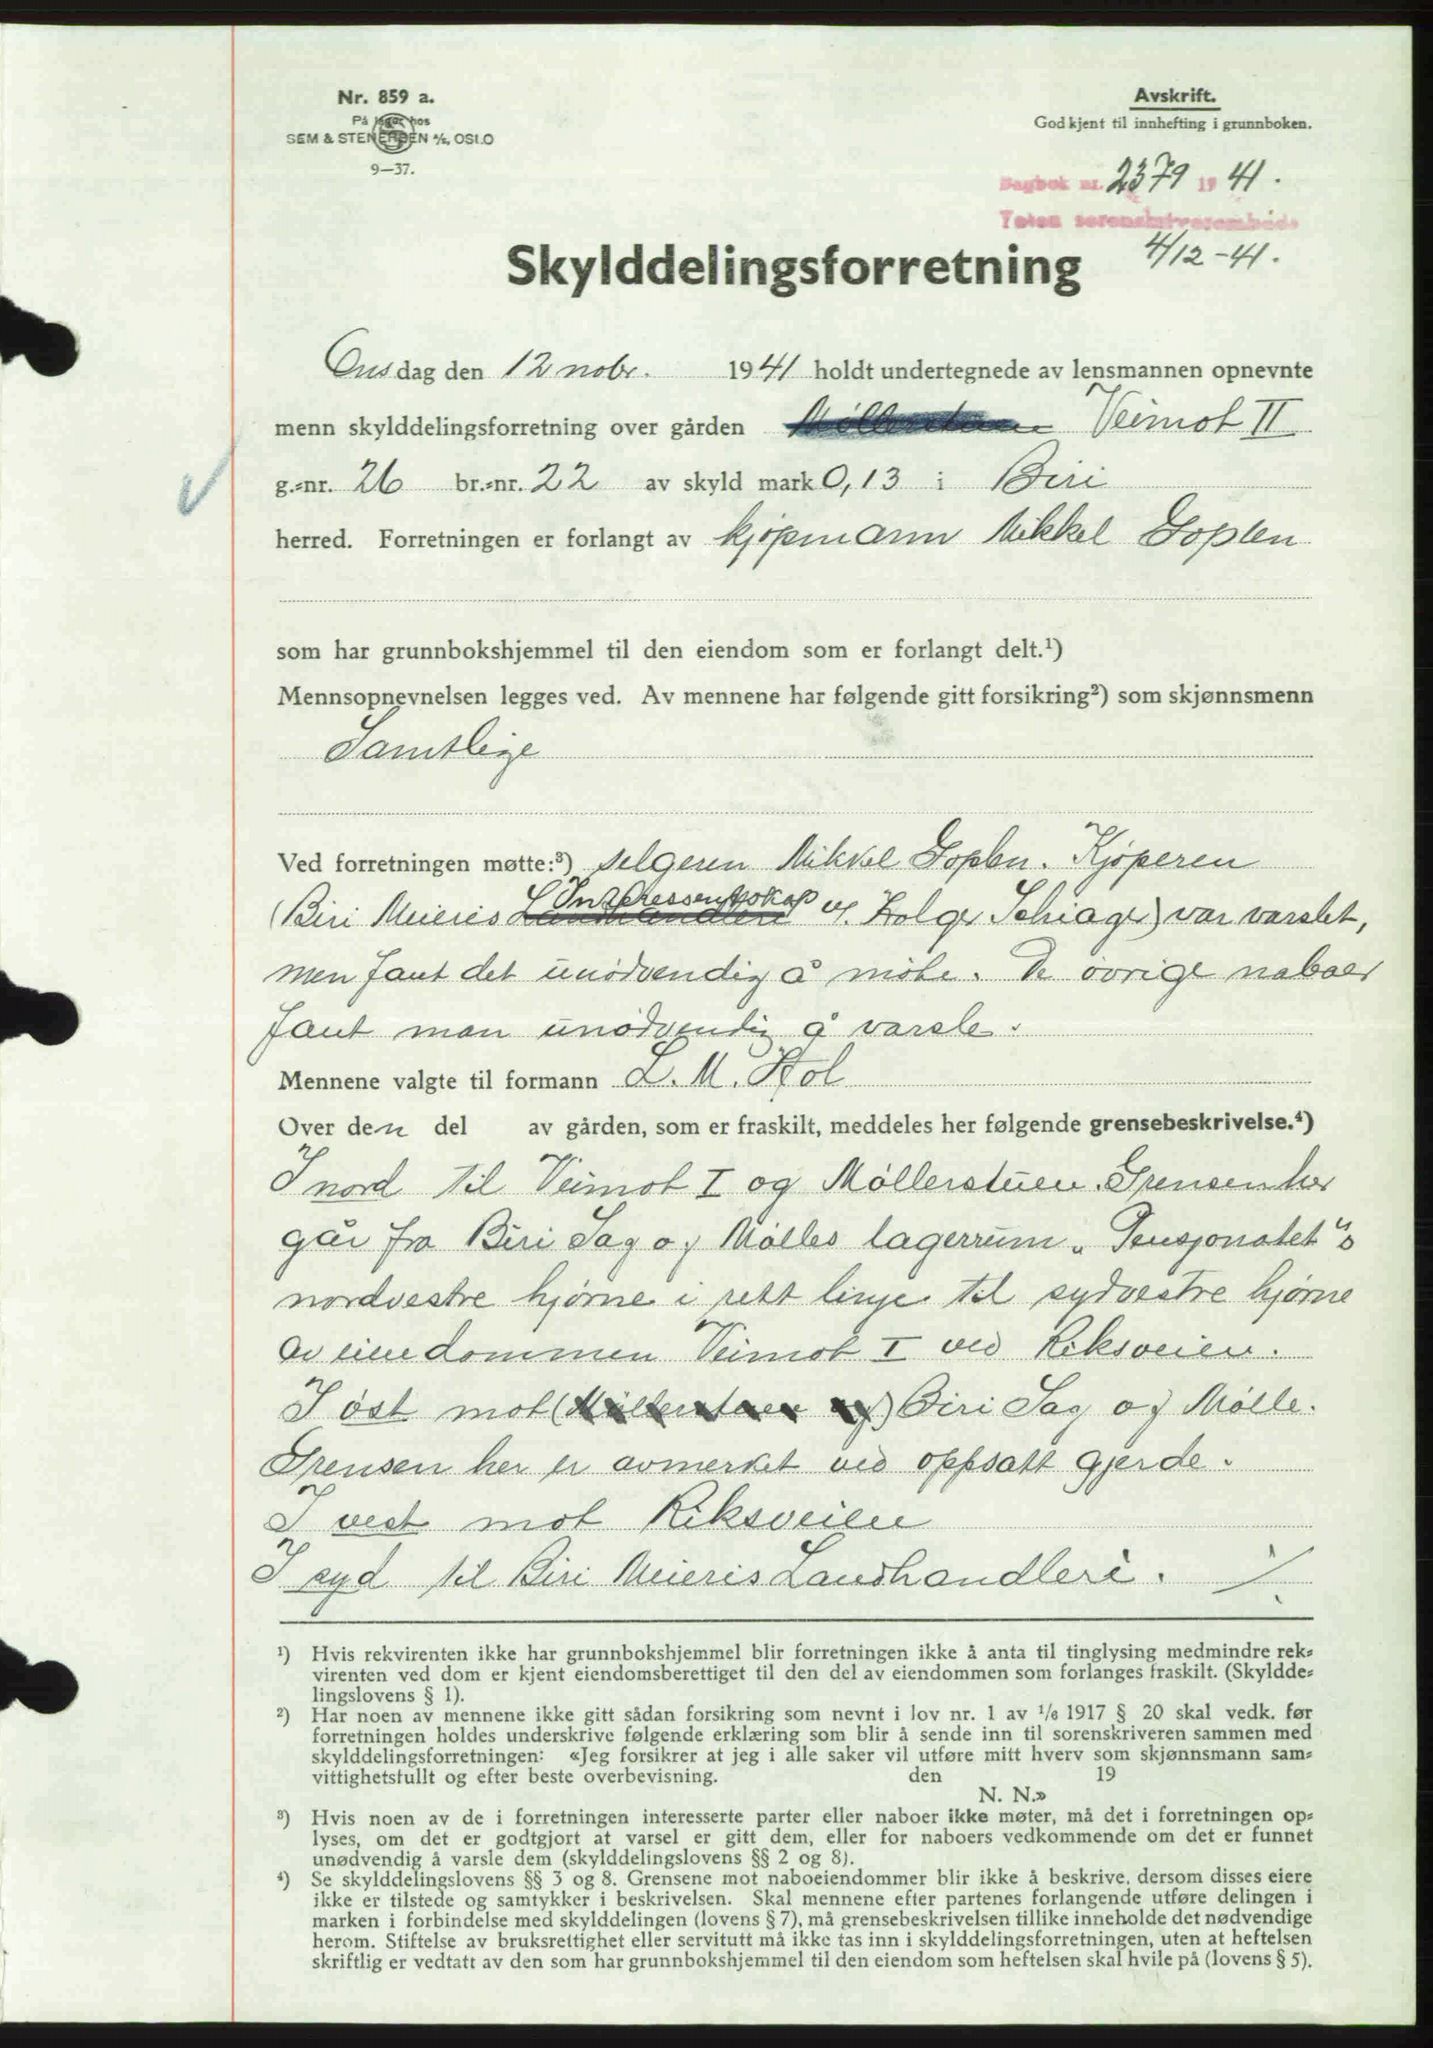 Nr. 859 a.
På lager hos
SEM & STENERSEN A/S, OSLO
9—37.
Avskrift.
Godkjent til innhefting i grunnboken.
Dagbok nr. 2379 1941.
Toten sorenskriverembede
4/12-41.
Skylddelingsforretning
Onsdag den 12 nobr. 1941 holdt undertegnede av lensmannen opnevnte
menn skylddelingsforretning over gården Møllerstuen Veimot II
g.-nr. 26 br.-nr. 22 av skyld mark 0,13 i Biri
herred. Forretningen er forlangt av kjøpmann Mikkel Goplen
som har grunnbokshjemmel til den eiendom som er forlangt delt.¹)
Mennsopnevnelsen legges ved. Av mennene har følgende gitt forsikring²) som skjønnsmenn
Samtlige
Ved forretningen møtte:³) selgeren Mikkel Goplen. Kjøperen
(Biri Meieris Landhandleri Interessentskap v/ Holger Schiager) var varslet,
men fant det unødvendig å møte. De øvrige naboer
fant man unødvendig å varsle.
Mennene valgte til formann L. M. Hol
Over den del av gården, som er fraskilt, meddeles her følgende grensebeskrivelse.⁴)
I nord til Veimot I og Møllerstuen. Grensen her
går fra Biri Sag og Mølles lagerrum „Pensjonatet“s
nordvestre hjørne i rett linje til sydvestre hjørne
av eiendommen Veimot I ved Riksveien.
I øst mot (Møllerstuen og) Biri Sag og Mølle.
Grensen her er avmerket ved oppsatt gjerde.
I vest mot Riksveien
I syd til Biri Meieris Landhandleri. ./.
¹) Hvis rekvirenten ikke har grunnbokshjemmel blir forretningen ikke å anta til tinglysing medmindre rek-
virenten ved dom er kjent eiendomsberettiget til den del av eiendommen som forlanges fraskilt. (Skyldde-
lingslovens § 1).
²) Har noen av mennene ikke gitt sådan forsikring som nevnt i lov nr. 1 av ¹/₆ 1917 § 20 skal vedk. før
forretningen holdes underskrive følgende erklæring som blir å sende inn til sorenskriveren sammen med
skylddelingsforretningen: «Jeg forsikrer at jeg i alle saker vil utføre mitt hverv som skjønnsmann sam-
vittighetsfullt og efter beste overbevisning. den 19
N. N.»
³) Hvis noen av de i forretningen interesserte parter eller naboer ikke møter, må det i forretningen op-
lyses, om det er godtgjort at varsel er gitt dem, eller for naboers vedkommende om det er funnet
unødvendig å varsle dem (skylddelingslovens §§ 2 og 8).
⁴) Se skylddelingslovens §§ 3 og 8. Grensene mot naboeiendommer blir ikke å beskrive, dersom disses eiere
ikke er tilstede og samtykker i beskrivelsen. Skal mennene efter partenes forlangende utføre delingen i
marken i forbindelse med skylddelingen (lovens § 7), må grensebeskrivelsen tillike inneholde det nødvendige
herom. Stiftelse av bruksrettighet eller servitutt må ikke tas inn i skylddelingsforretningen, uten at heftelsen
skriftlig er vedtatt av den som har grunnbokshjemmel til den eiendom som heftelsen skal hvile på (lovens § 5).